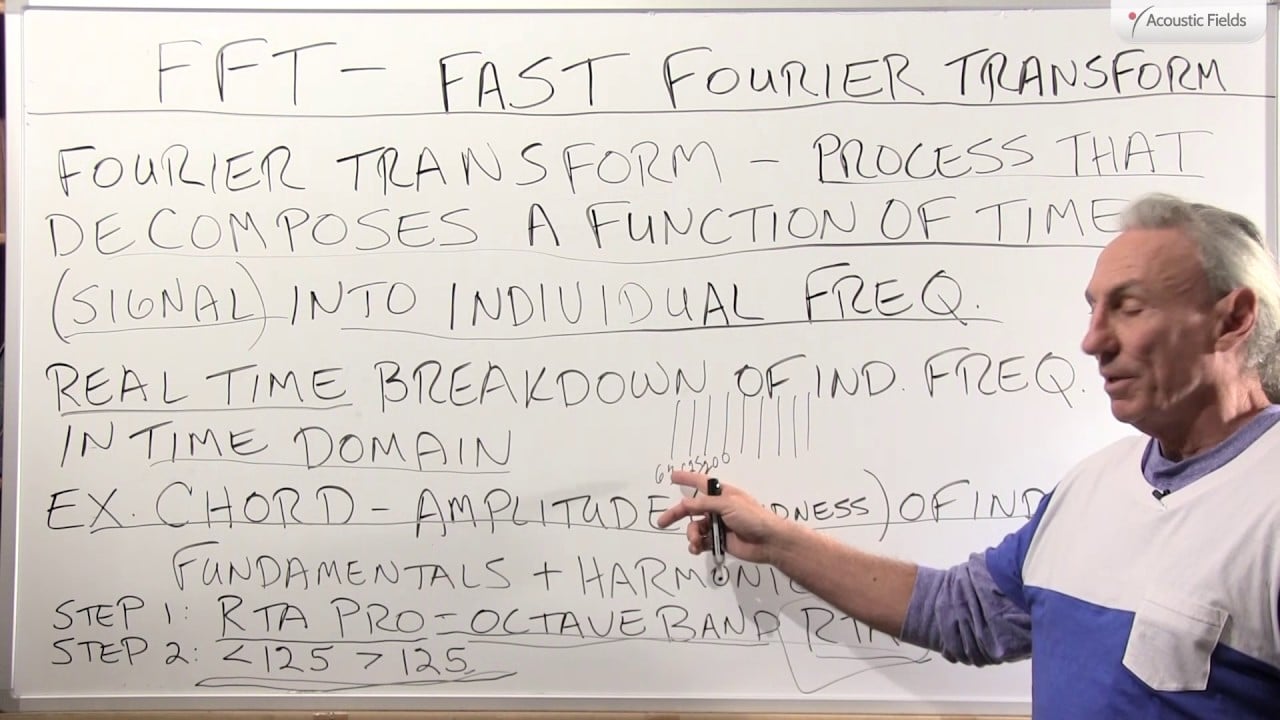 Acoustic Fields
FFT - FAST FOURIER TRANSFORM
FOURIER TRANSFORM - PROCESS THAT
DECOMPOSES A FUNCTION OF TIME
(SIGNAL) INTO INDIVIDUAL FREQ.
REAL TIME BREAKDOWN OF IND. FREQ.
IN TIME DOMAIN
EX. CHORD - AMPLITUDE DNESS) OF IND
FUNDAMENTALS + HARMONIC
STEP 1: RTA PRO - OCTAVE BAND RTA
STEP 2: <125 >125